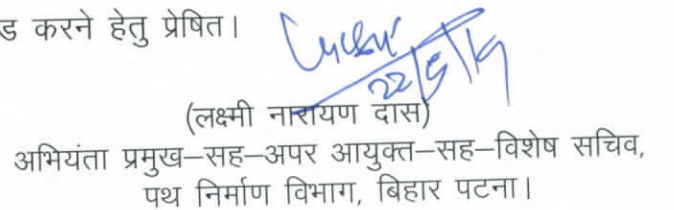 ड करने हेतु प्रेषित।
22/5/15
(लक्ष्मी नारायण दास)
अभियंता प्रमुख–सह–अपर आयुक्त–सह–विशेष सचिव,
पथ निर्माण विभाग, बिहार पटना।